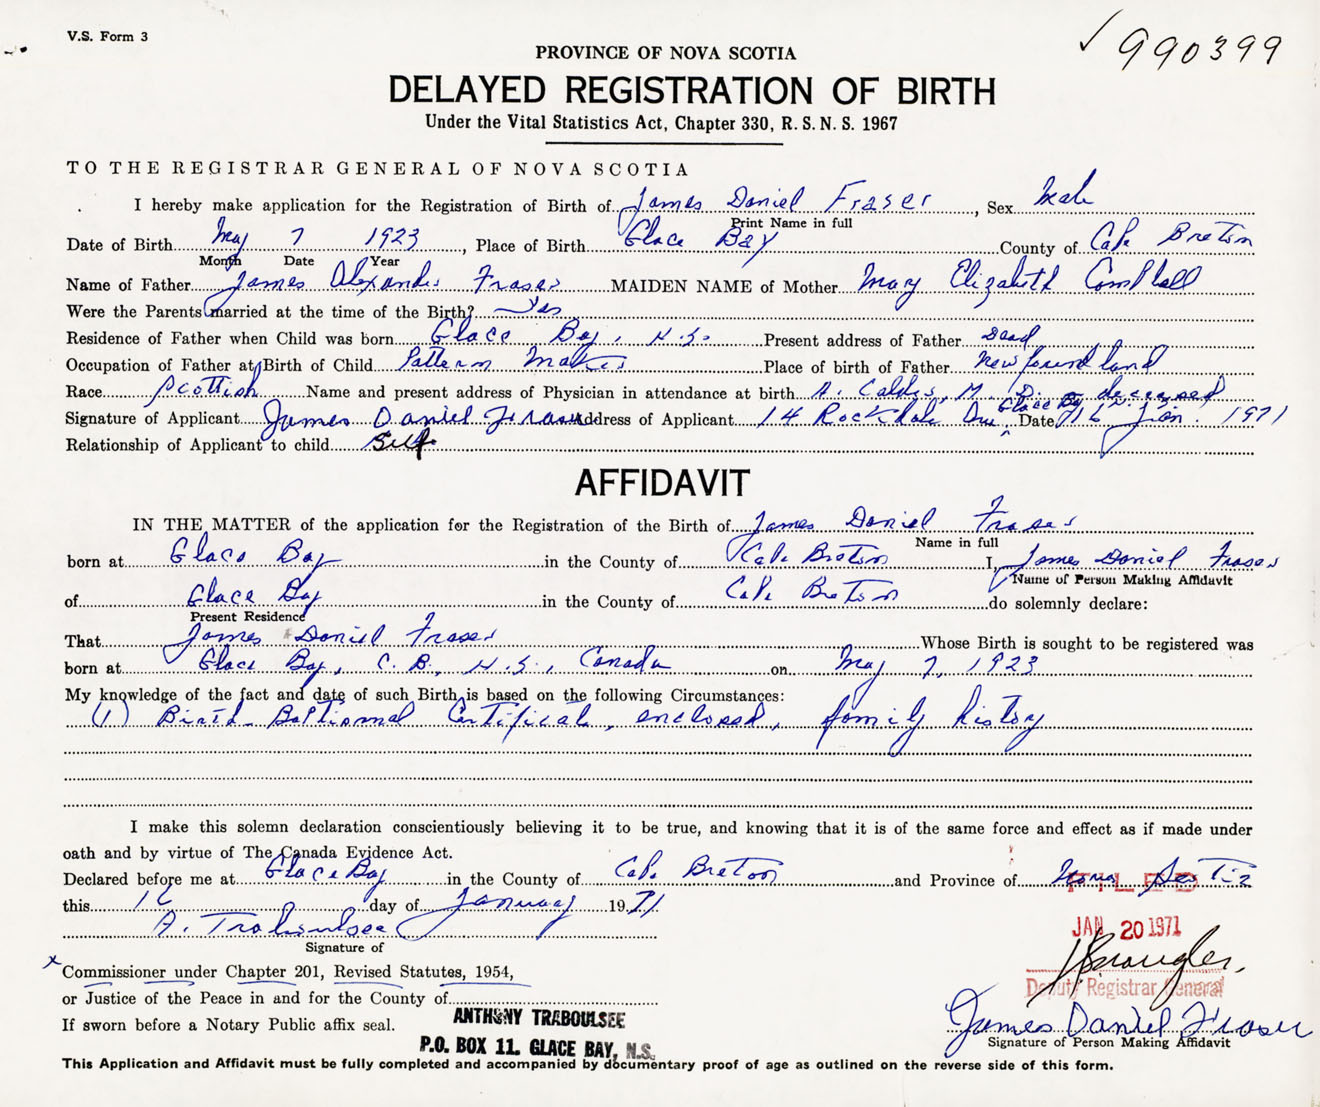 V.S. Form 3
✓990399
PROVINCE OF NOVA SCOTIA
DELAYED REGISTRATION OF BIRTH
Under the Vital Statistics Act, Chapter 330, R. S. N. S. 1967
TO THE REGISTRAR GENERAL OF NOVA SCOTIA
I hereby make application for the Registration of Birth of James Daniel Fraser, Sex Male
Print Name in full
Date of Birth May 7 1923, Place of Birth Glace Bay County of Cape Breton
Month Date Year
Name of Father James Alexander Fraser MAIDEN NAME of Mother Mary Elizabeth Campbell
Were the Parents married at the time of the Birth? Yes
Residence of Father when Child was born Glace Bay, N.S. Present address of Father Dead
Occupation of Father at Birth of Child Pattern Maker Place of birth of Father Newfoundland
Race Scottish Name and present address of Physician in attendance at birth A. Calder, M.D. deceased
Signature of Applicant James Daniel Fraser Address of Applicant 14 Rockdale Ave Glace Bay Date 16 Jan. 1971
Relationship of Applicant to child Self
AFFIDAVIT
IN THE MATTER of the application for the Registration of the Birth of James Daniel Fraser
Name in full
born at Glace Bay in the County of Cape Breton I, James Daniel Fraser
Name of Person Making Affidavit
of Glace Bay in the County of Cape Breton do solemnly declare:
Present Residence
That James Daniel Fraser Whose Birth is sought to be registered was
born at Glace Bay, C.B., N.S., Canada on May 7, 1923
My knowledge of the fact and date of such Birth is based on the following Circumstances:
(1) Birth-Baptismal Certificate, enclosed, family history
I make this solemn declaration conscientiously believing it to be true, and knowing that it is of the same force and effect as if made under
oath and by virtue of The Canada Evidence Act.
Declared before me at Glace Bay in the County of Cape Breton and Province of Nova Scotia
FILED
this 16 day of January 1971
JAN 20 1971
A. Traboulsee
Signature of
Commissioner under Chapter 201, Revised Statutes, 1954,
Deputy Registrar General
or Justice of the Peace in and for the County of
If sworn before a Notary Public affix seal.
ANTHONY TRABOULSEE
James Daniel Fraser
Signature of Person Making Affidavit
P.O. BOX 11. GLACE BAY, N.S.
This Application and Affidavit must be fully completed and accompanied by documentary proof of age as outlined on the reverse side of this form.